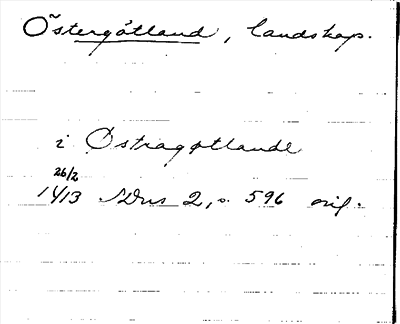 Östergötland, landskap.
i Østragøtlande
26/2
1413 SDns 2, s. 596 orig.